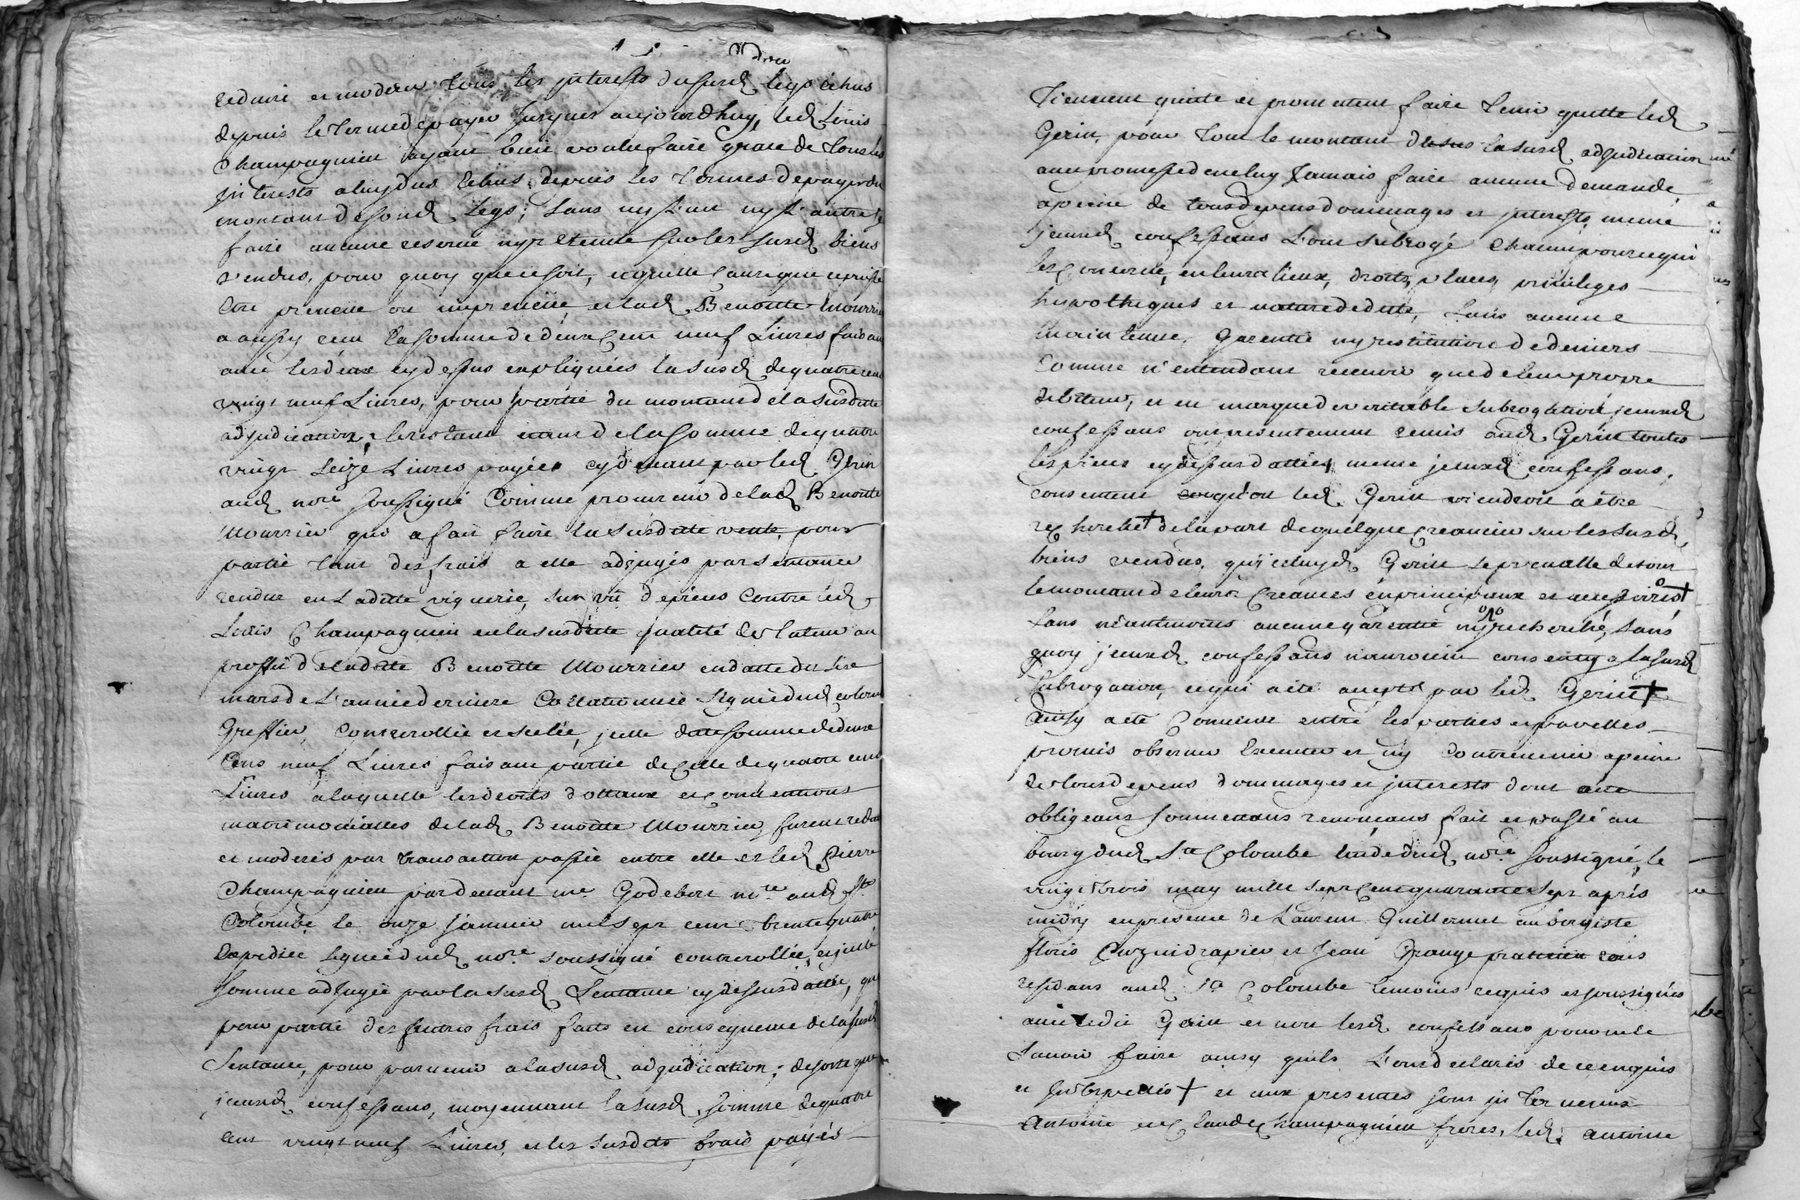 reduire et moderer tous les interests dususd. legs échus
depuis le terme de payer jusques aujourdhuy, led. Louis
Champagnieu ayant bien voulu faire grace de tous les
interests a luy dus échus depuis les termes de payer du
montant de sond. legs; sans ny l'un ny l'autre y
faire aucune reserve ny retenue sur les susd. biens
vendus, pour quoy que ce soit, et quelle cause que ce puisse
être preveüe ou impreveüe, et lad. Benoitte Mourrier
a aussy reçu la somme de deux cent neuf Livres faisant
avec les deux cy dessus expliquées la susd. de quatre cent
vingt neuf Livres, pour partie du montant de la susditte
adjudication; le restant etant de la somme de quatre
vingt seize Livres payée cy devant par led. Gerin
aud. nore. soussigné comme procureur de lad. Benoitte
Mourrier qui a fait faire la susditte vente, pour
partie tant des frais a elle adjugés par sentence
rendue en Laditte viguerie, sur vû de pieces contre led.
Loüis Champagnieu en la susditte qualité de tuteur au
proffit de laditte Benoitte Mourrier en datte du
mars de L'année derniere Collationnée signée dud.
Greffier, Controllée et scelée, icelle ditte somme de deux
Cens neuf Livres faisant partie de celle de quatre cens
Livres a laquelle les droits dottaux et conventions
matrimonialles de lad. Benoitte Mourrier furent reduits
et moderés par transaction passée entre elle et led. Pierre
Champagnieu pardevant me. Godebert nore. aud. Ste.
Colombe le onze janvier mil sept cent trente quatre
Expediée signée dud. nore. soussigné controllée,
somme adjugée par la susd. Sentence cy dessus dattée, que
pour partie des frais faits en consequence de la susd.
Sentence, pour parvenir a la susd. adjudication; de sorte que
iceuxd. confessans, moyennant la susd. somme de quatre
cent vingt neuf Livres, et les susdits frais payés
Tiennent quitte et promettent faire tenir quitte led.
Gerin, pour tout le montant de la susd. adjudication
avec promesse de ne luy jamais faire aucune demande
a peine de tous depens dommages et interests, meme
iceuxd. confessans L'ont subrogé chacun pour ce qui
les concerne, en leurs lieux, droits, places, privileges
hypotheques et nature de dette, sans aucune
maintenue, garentie ny restitution de deniers
comme n'entendant recevoir que de leur propre
debiteur, et en marque de veritable subrogation iceuxd.
confessans ont presentement remis aud. Gerin toutes
les pieces cy dessus dattées, meme iceuxd. confessans,
consentent led. Gerin viendroit a être
recherché + de la part de quelque creancier sur les susd.
biens vendus, qu'iceluyd. Gerin se prevalle de tout
le montant de leurs creances en principaux et accessoires +
sans néantmoins aucune garentie ny recherche, sans
quoy iceuxd. confessans n'auroient consenty a la susd.
subrogation, ce qui a été accepté par led. Gerin +
Ainsy a été convenu entre les parties et par elles
promis observer executer et n'y contrevenir a peine
de tous depens dommages et interests dont acte
obligeans soumettans renonçans fait et passé au
bourg dud. Ste. Colombe etude dud. nore. soussigné, le
vingt trois may mille sept cent quarante sept aprés
midy en presence de Laurent Guillermet aubergiste
floris drapier et Jean Grange praticien tous
residans aud. Ste. Colombe temoins requis et soussignés
avec led. Gerin et non lesd. confessans pour ne le
savoir faire ainsy qu'ils L'ont declarés de ce enquis
et interpellés + et aux presentes sont intervenus
Antoine et Claude Champagnieu freres, led. Antoine